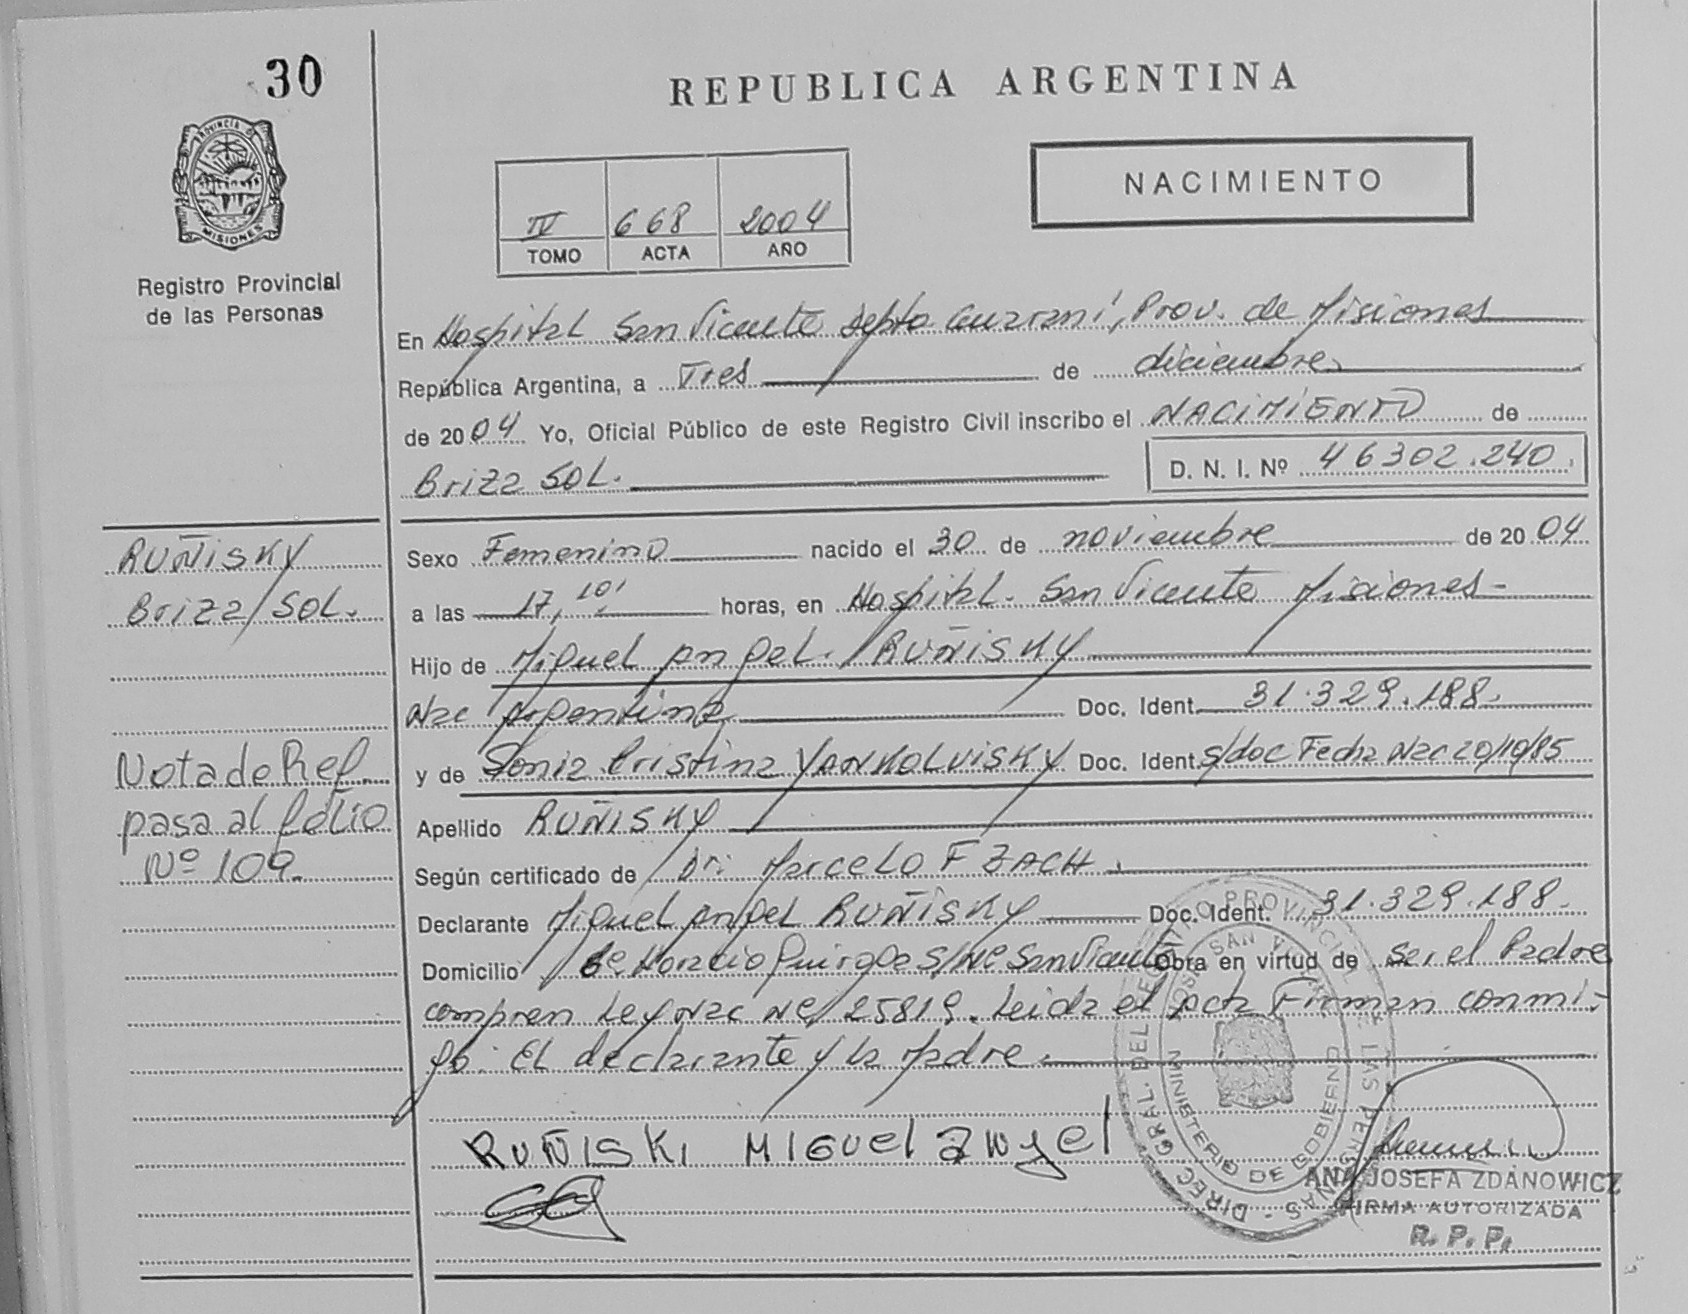 30
REPUBLICA ARGENTINA
PROVINCIA DE
MISIONES
Registro Provincial
de las Personas
NACIMIENTO
IV 668 2004
TOMO ACTA AÑO
En Hospital San Vicente Depto Guaraní, Prov. de Misiones
República Argentina, a Tres de diciembre
de 2004 Yo, Oficial Público de este Registro Civil inscribo el NACIMIENTO de
Briza SOL.
D. N. I. Nº 46302.240.
RUÑISKY
Briza SOL.
Sexo Femenino nacido el 30 de noviembre de 2004
a las 17,10' horas, en Hospital. San Vicente Misiones-
Hijo de Miguel Angel. RUÑISKY
Nac Argentina Doc. Ident. 31.329.188.
y de Sonia Cristina YANKOLVISKY Doc. Ident. s/doc Fecha Nac 20/10/85
Nota de Ref.
pasa al folio
Nº 109.
Apellido RUÑISKY
Según certificado de Dr. Marcelo F ZACH.
Declarante Miguel Angel RUÑISKY Doc. Ident. 31.329.188.
Domicilio Horacio Quiroga S/Nº San Vicente Obra en virtud de Ser el Padre
compren Ley Nac Nº 25819. Leida el acta Firman conmi-
go. El declarante y la Madre.
RUÑISKI MIGUEL angel
DIREC. GRAL. DEL REGISTRO PROVINCIAL DE LAS PERSONAS
MINISTERIO DE GOBIERNO
SAN VICENTE
ANA JOSEFA ZDANOWICZ
FIRMA AUTORIZADA
R. P. P.